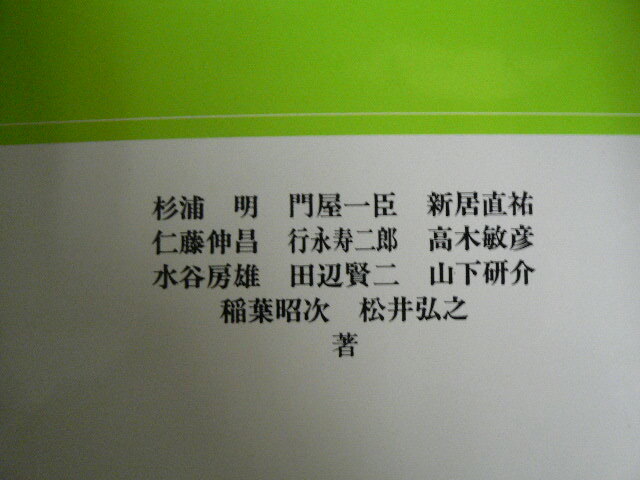 杉浦　明　門屋一臣　新居直祐
仁藤伸昌　行永寿二郎　高木敏彦
水谷房雄　田辺賢二　山下研介
稲葉昭次　松井弘之
著